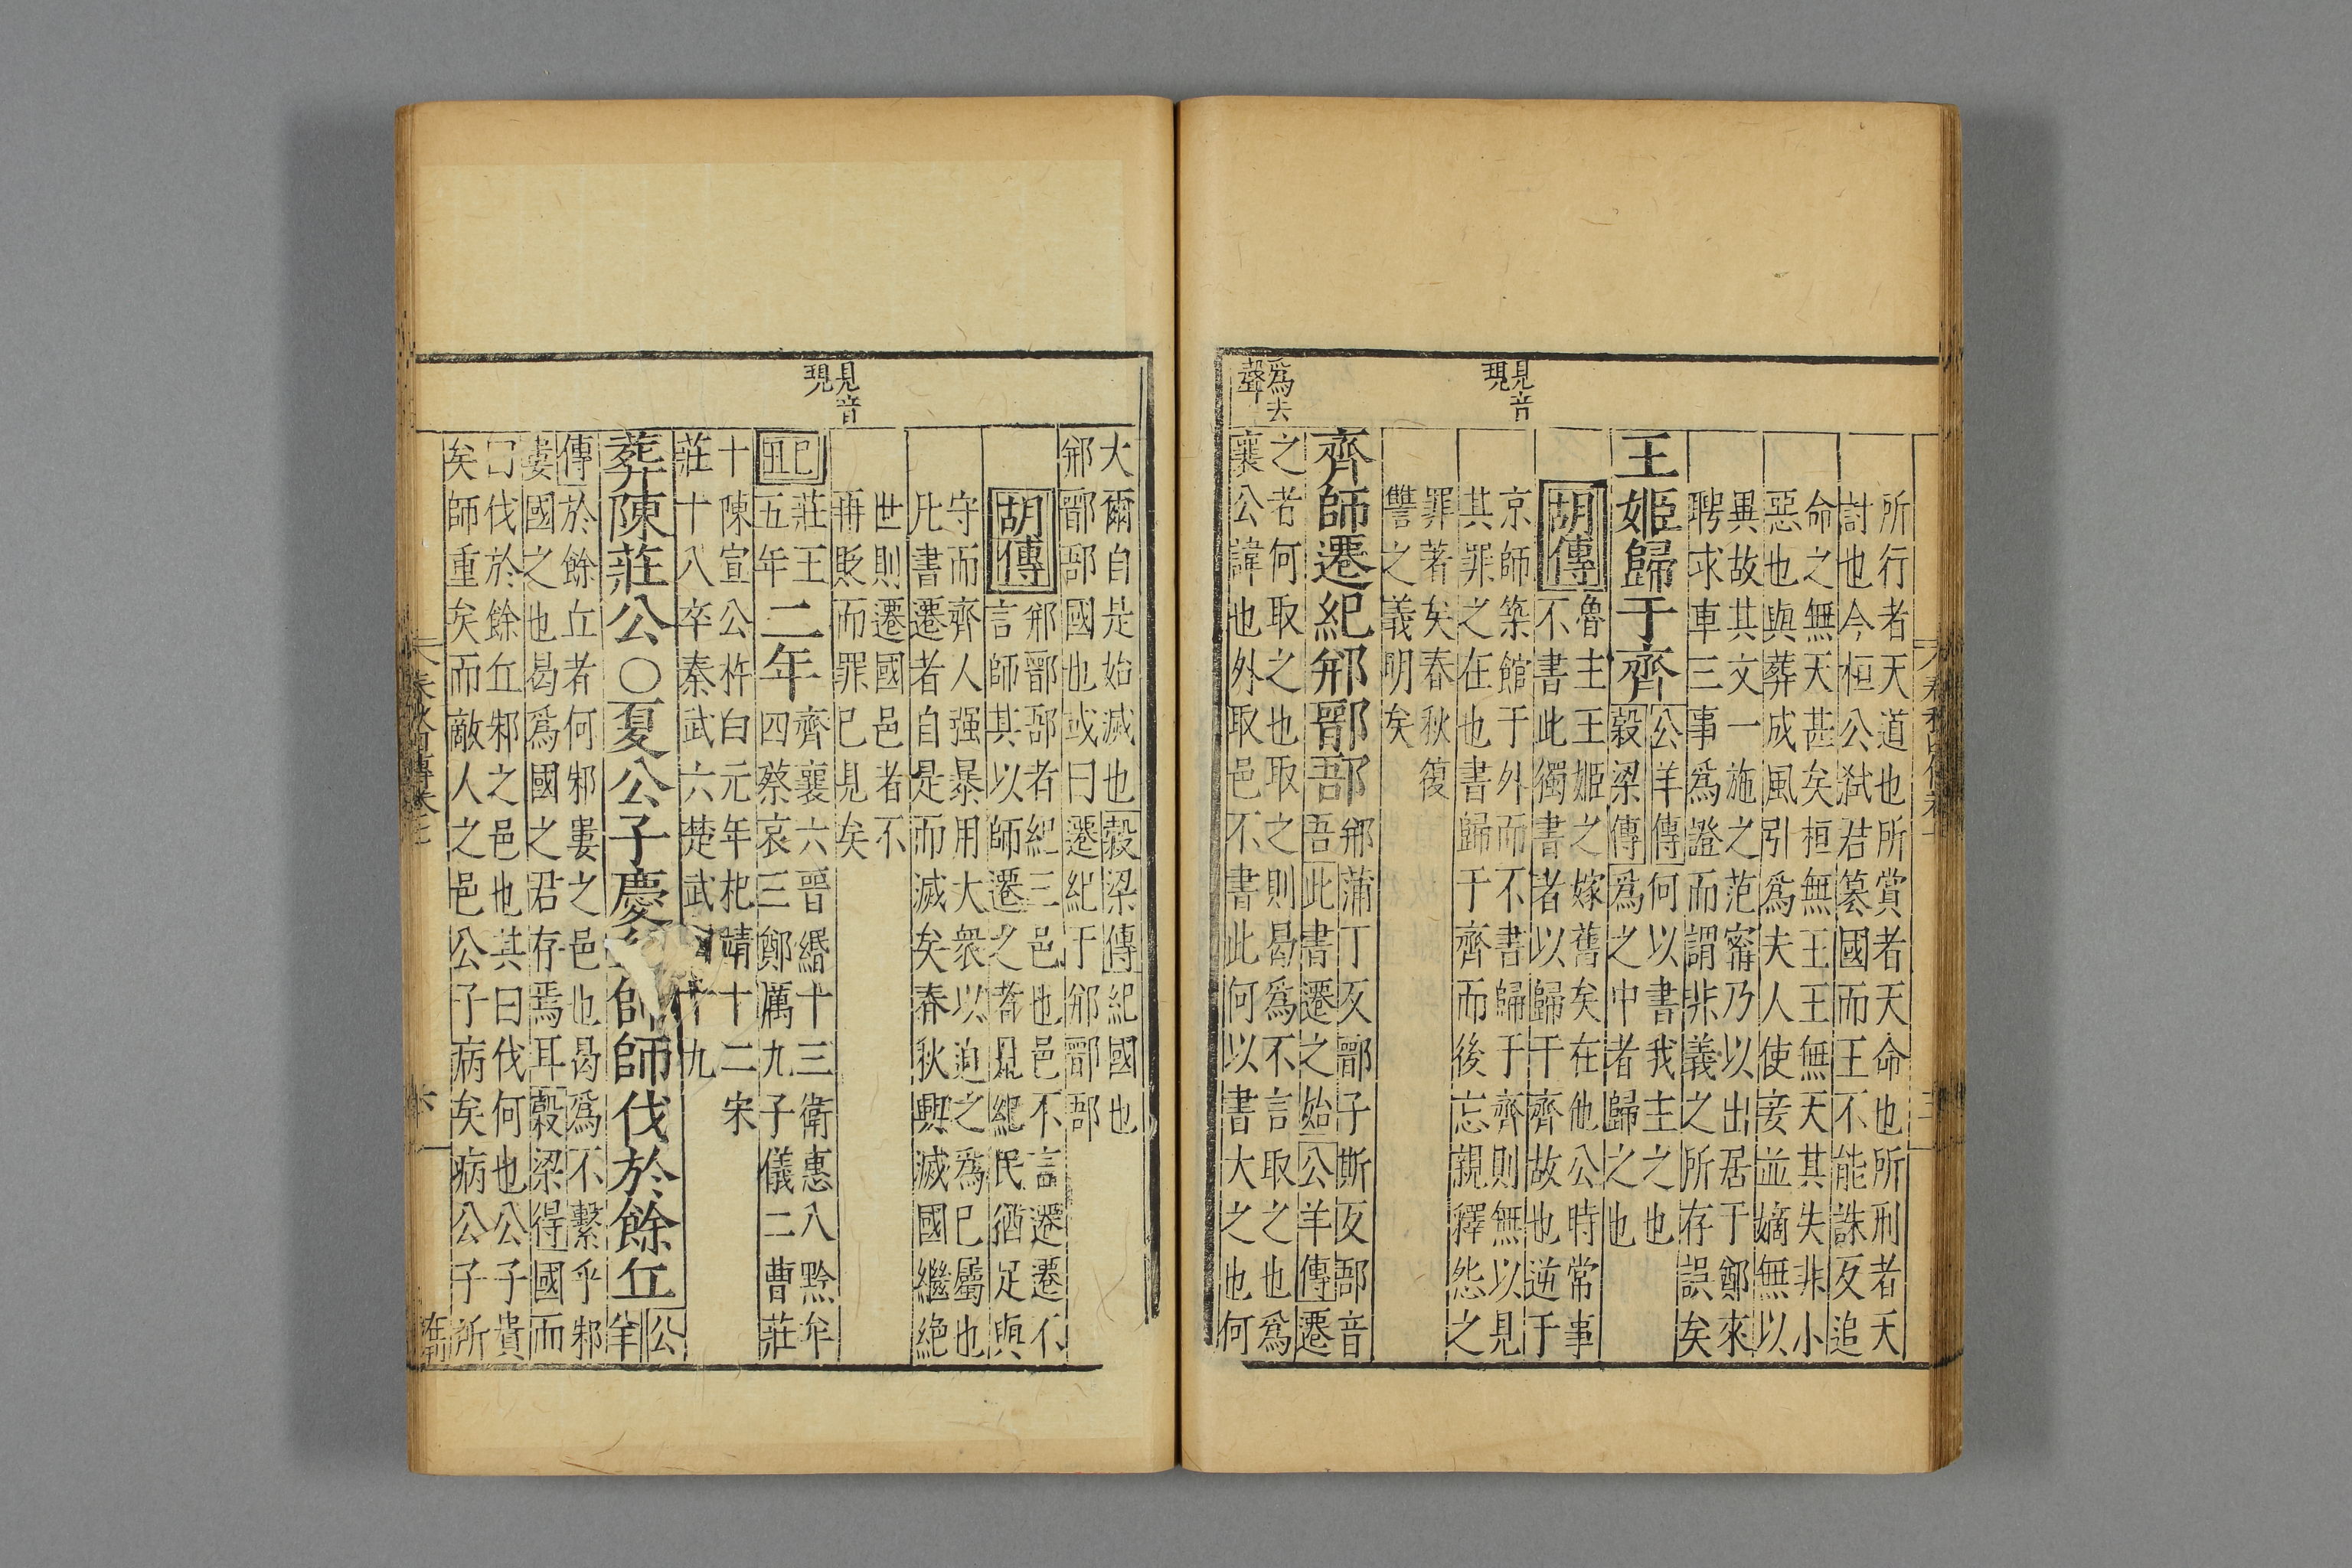 所行者天道也所賞者天命也所刑者天
討也今桓公弑君篡國而王不能誅反追
命之無天甚矣桓無王王無天其失非小
惡也與葬成風引爲夫人使妾並嫡無以
異故其文一施之范甯乃以出居于鄭來
聘求車三事爲證而謂非義之所存誤矣
王姬歸于齊
公羊傳何以書我主之也
穀梁傳爲之中者歸之也
胡傳
魯主王姬之嫁舊矣在他公時常事
不書此獨書者以歸于齊故也逆于
京師築館于外而不書歸于齊則無以見
其罪之在也書歸于齊而後忘親釋怨之
罪著矣春秋復
讐之義明矣
見音
現
齊師遷紀郱鄑郚
郱蒲丁反鄑子斯反郚音
吾此書書遷之始公羊傳遷
之者何取之也取之則曷爲不言取之也爲
襄公諱也外取邑不書此何以書大之也何
爲去
聲
大爾自是始滅也穀梁傳紀國也
郱鄑郚國也或曰遷紀于郱鄑郚
胡傳
郱鄑郚者紀三邑也邑不言遷遷不
言師其以師遷之者見紀民猶足與
守而齊人强暴用大衆以迫之爲己屬也
凡書遷者自是而滅矣春秋興滅國繼絶
世則遷國邑者不
再貶而罪已見矣
見音
現
己丑
莊王
五年
二年
齊襄六晉緡十三衛惠八黔牟
四蔡哀三鄭厲九子儀二曹莊
十陳宣公杵臼元年杞靖十二宋
莊十八卒秦武六楚武十九
葬陳莊公○夏公子慶師師伐於餘丘
公
羊
傳於餘丘者何邾婁之邑也曷爲不繫乎邾
婁國之也曷爲國之君存焉耳穀梁得國而
曰伐於餘丘邾之邑也其曰伐何也公子貴
矣師重矣而敵人之邑公子病矣病公子所